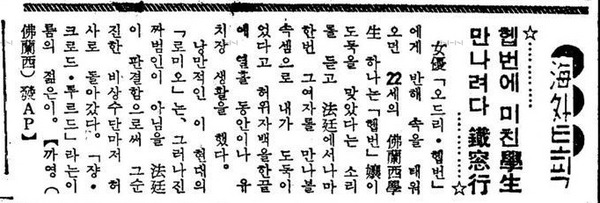 海外토픽
헵번에 미친 學生
만나려다 鐵窓行
女優「오드리·헵번」
에게 반해 속을 태워
오던 22세의 佛蘭西學
生 하나는「헵번」孃이
도둑을 맞았다는 소리
를 듣고 法廷에서나마
한번 그여자를 만나볼
속셈으로 내가 도둑이
었다고 허위자백을한끝
에 열흘 동안이나 유
치장 생활을 했다.
낭만적인 이 현대의
「로미오」는, 그러나진
짜범인이 아님을 法廷
이 판결함으로써 그순
진한 비상수단마저 허
사로 돌아갔다. 「쟝·
크로드·투르드」라는이
름의 젊은이.【까영(
佛蘭西)發AP】